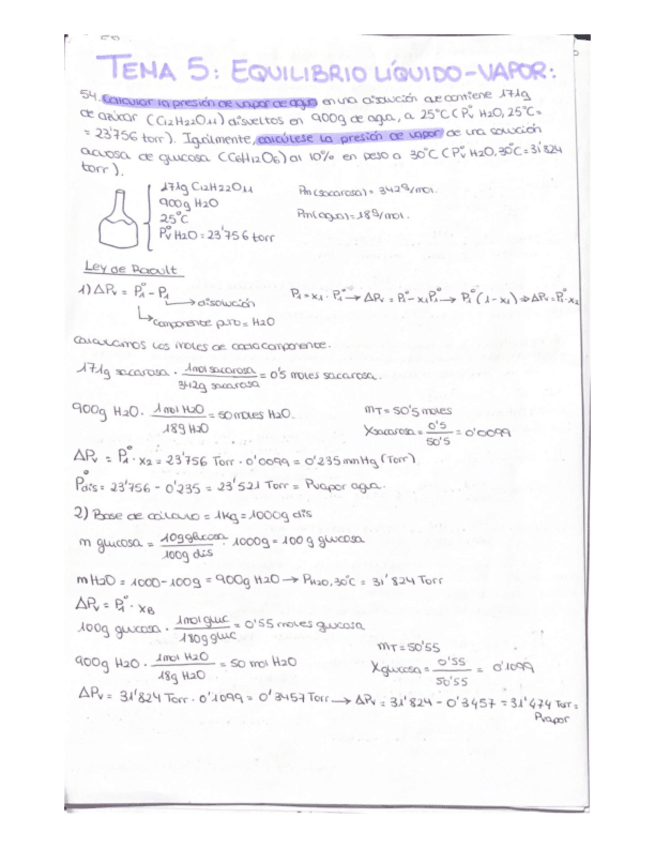 TEMA 5: EQUILIBRIO LÍQUIDO-VAPOR:
54. Calcular la presión de vapor de agua en una disolución que contiene 171g
de azúcar (C12H22O11) disueltos en 900g de agua, a 25°C (Pv° H2O, 25°C =
= 23'756 torr). Igualmente, calcúlese la presión de vapor de una solución
acuosa de glucosa (C6H12O6) al 10% en peso a 30°C (Pv° H2O, 30°C = 31'824
torr).
171g C12H22O11
900g H2O
25°C
Pv° H2O = 23'756 torr
Pm(sacarosa) = 342g/mol.
Pm(agua) = 18g/mol.
Ley de Raoult
1) ΔPv = P1° - P1
→ disolución
↳ componente puro = H2O
P1 = x1 · P1° → ΔPv = P1° - x1P1° → P1° (1 - x1) ⇒ ΔPv = P1° · x2
Calculamos los moles de cada componente.
171g sacarosa · 1mol sacarosa / 342g sacarosa = 0'5 moles sacarosa.
900g H2O · 1mol H2O / 18g H2O = 50 moles H2O.
mT = 50'5 moles
Xsacarosa = 0'5 / 50'5 = 0'0099
ΔPv = P1° · x2 = 23'756 Torr · 0'0099 = 0'235 mmHg (Torr)
P°dis = 23'756 - 0'235 = 23'521 Torr = Pvapor agua.
2) Base de cálculo = 1Kg = 1000g dis
m glucosa = 10g glucosa / 100g dis · 1000g = 100g glucosa
mH2O = 1000 - 100g = 900g H2O → PH2O, 30°C = 31'824 Torr
ΔPv = P1° · xB
100g glucosa · 1mol gluc / 180g gluc = 0'55 moles glucosa
900g H2O · 1mol H2O / 18g H2O = 50 mol H2O
mT = 50'55
Xglucosa = 0'55 / 50'55 = 0'1099
ΔPv = 31'824 Torr · 0'1099 = 0'3457 Torr → ΔPv = 31'824 - 0'3457 = 31'474 Torr =
Pvapor